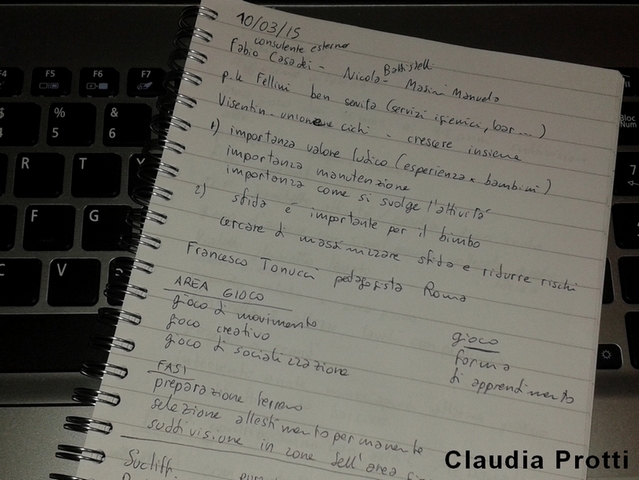 10/03/15
consulente esterno
Fabio Casadei - Nicola Battistelli - Masini Manuela
p.k Fellini ben servita (servizi igienici, bar...)
Visentin - unione cichi - crescere insieme
1) importanza valore ludico (esperienza x bambini)
importanza manutenzione
importanza come si svolge l'attività
2) sfida è importante per il bimbo
cercare di massimizzare sfida e ridurre rischi
Francesco Tonucci pedagogista Roma
AREA GIOCO
gioco di movimento
gioco creativo
gioco di socializzazione
gioco
forma
di apprendimento
FASI
preparazione terreno
selezione allestimento permanente
suddivisione in zone dell'area
Sucliff.
Claudia Protti
F4 F5 F6 F7
% 5 & 6
R T
D F G
C V
Bloc Num
7